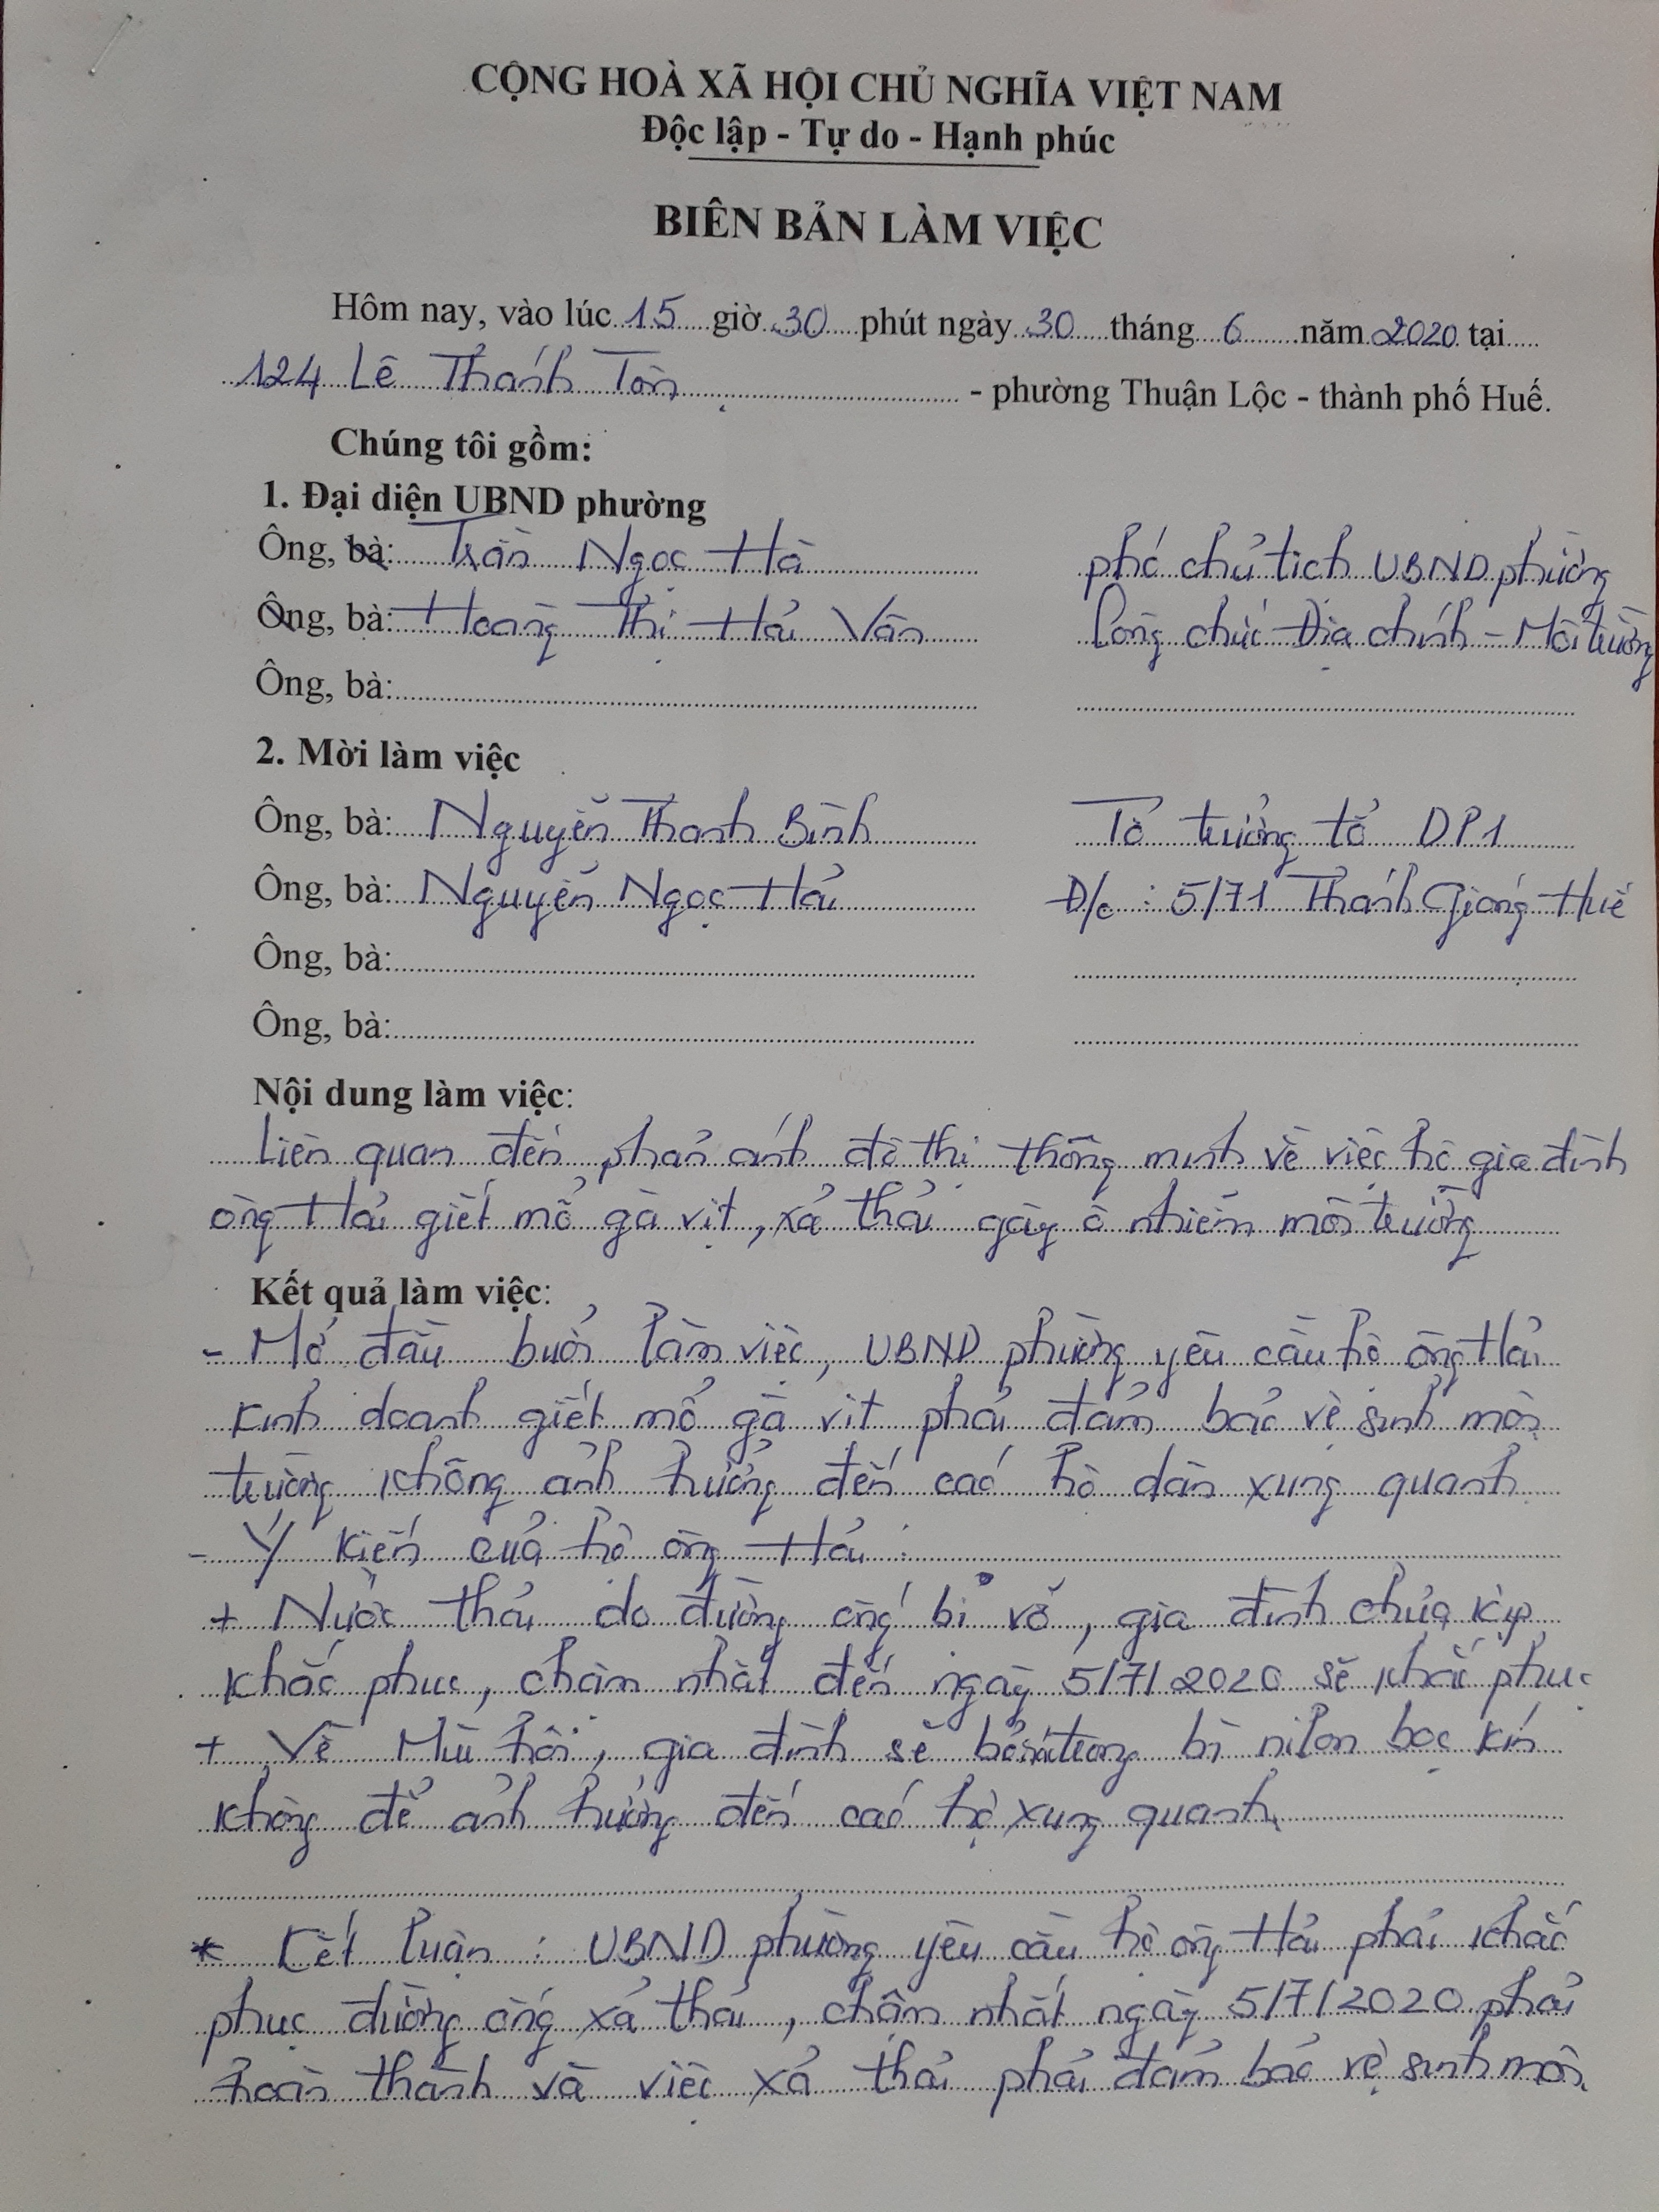 CỘNG HOÀ XÃ HỘI CHỦ NGHĨA VIỆT NAM
Độc lập - Tự do - Hạnh phúc
BIÊN BẢN LÀM VIỆC
Hôm nay, vào lúc 15 giờ 30 phút ngày 30 tháng 6 năm 2020 tại
124 Lê Thánh Tôn - phường Thuận Lộc - thành phố Huế.
Chúng tôi gồm:
1. Đại diện UBND phường
Ông, bà: Trần Ngọc Hà phó chủ tịch UBND phường
Ông, bà: Hoàng Thị Hải Vân Công chức Địa chính - Môi trường
Ông, bà:
2. Mời làm việc
Ông, bà: Nguyễn Thanh Bình Tổ trưởng tổ DP1
Ông, bà: Nguyễn Ngọc Hải Đ/c : 5/71 Thánh Gióng Huế
Ông, bà:
Ông, bà:
Nội dung làm việc:
Liên quan đến phản ánh đô thị thông minh về việc hộ gia đình
ông Hải giết mổ gà vịt, xả thải gây ô nhiễm môi trường
Kết quả làm việc:
- Mở đầu buổi làm việc, UBND phường yêu cầu hộ ông Hải
kinh doanh giết mổ gà vịt phải đảm bảo vệ sinh môi
trường không ảnh hưởng đến các hộ dân xung quanh
- Ý kiến của hộ ông Hải :
+ Nước thải do đường ống bị vỡ, gia đình chưa kịp
khắc phục, chậm nhất đến ngày 5/7/2020 sẽ khắc phục
+ Về Mùi hôi, gia đình sẽ bỏ trong bì nilon bọc kín
không để ảnh hưởng đến các hộ xung quanh.
* Kết luận : UBND phường yêu cầu hộ ông Hải phải khắc
phục đường ống xả thải, chậm nhất ngày 5/7/2020 phải
hoàn thành và việc xả thải phải đảm bảo vệ sinh môi